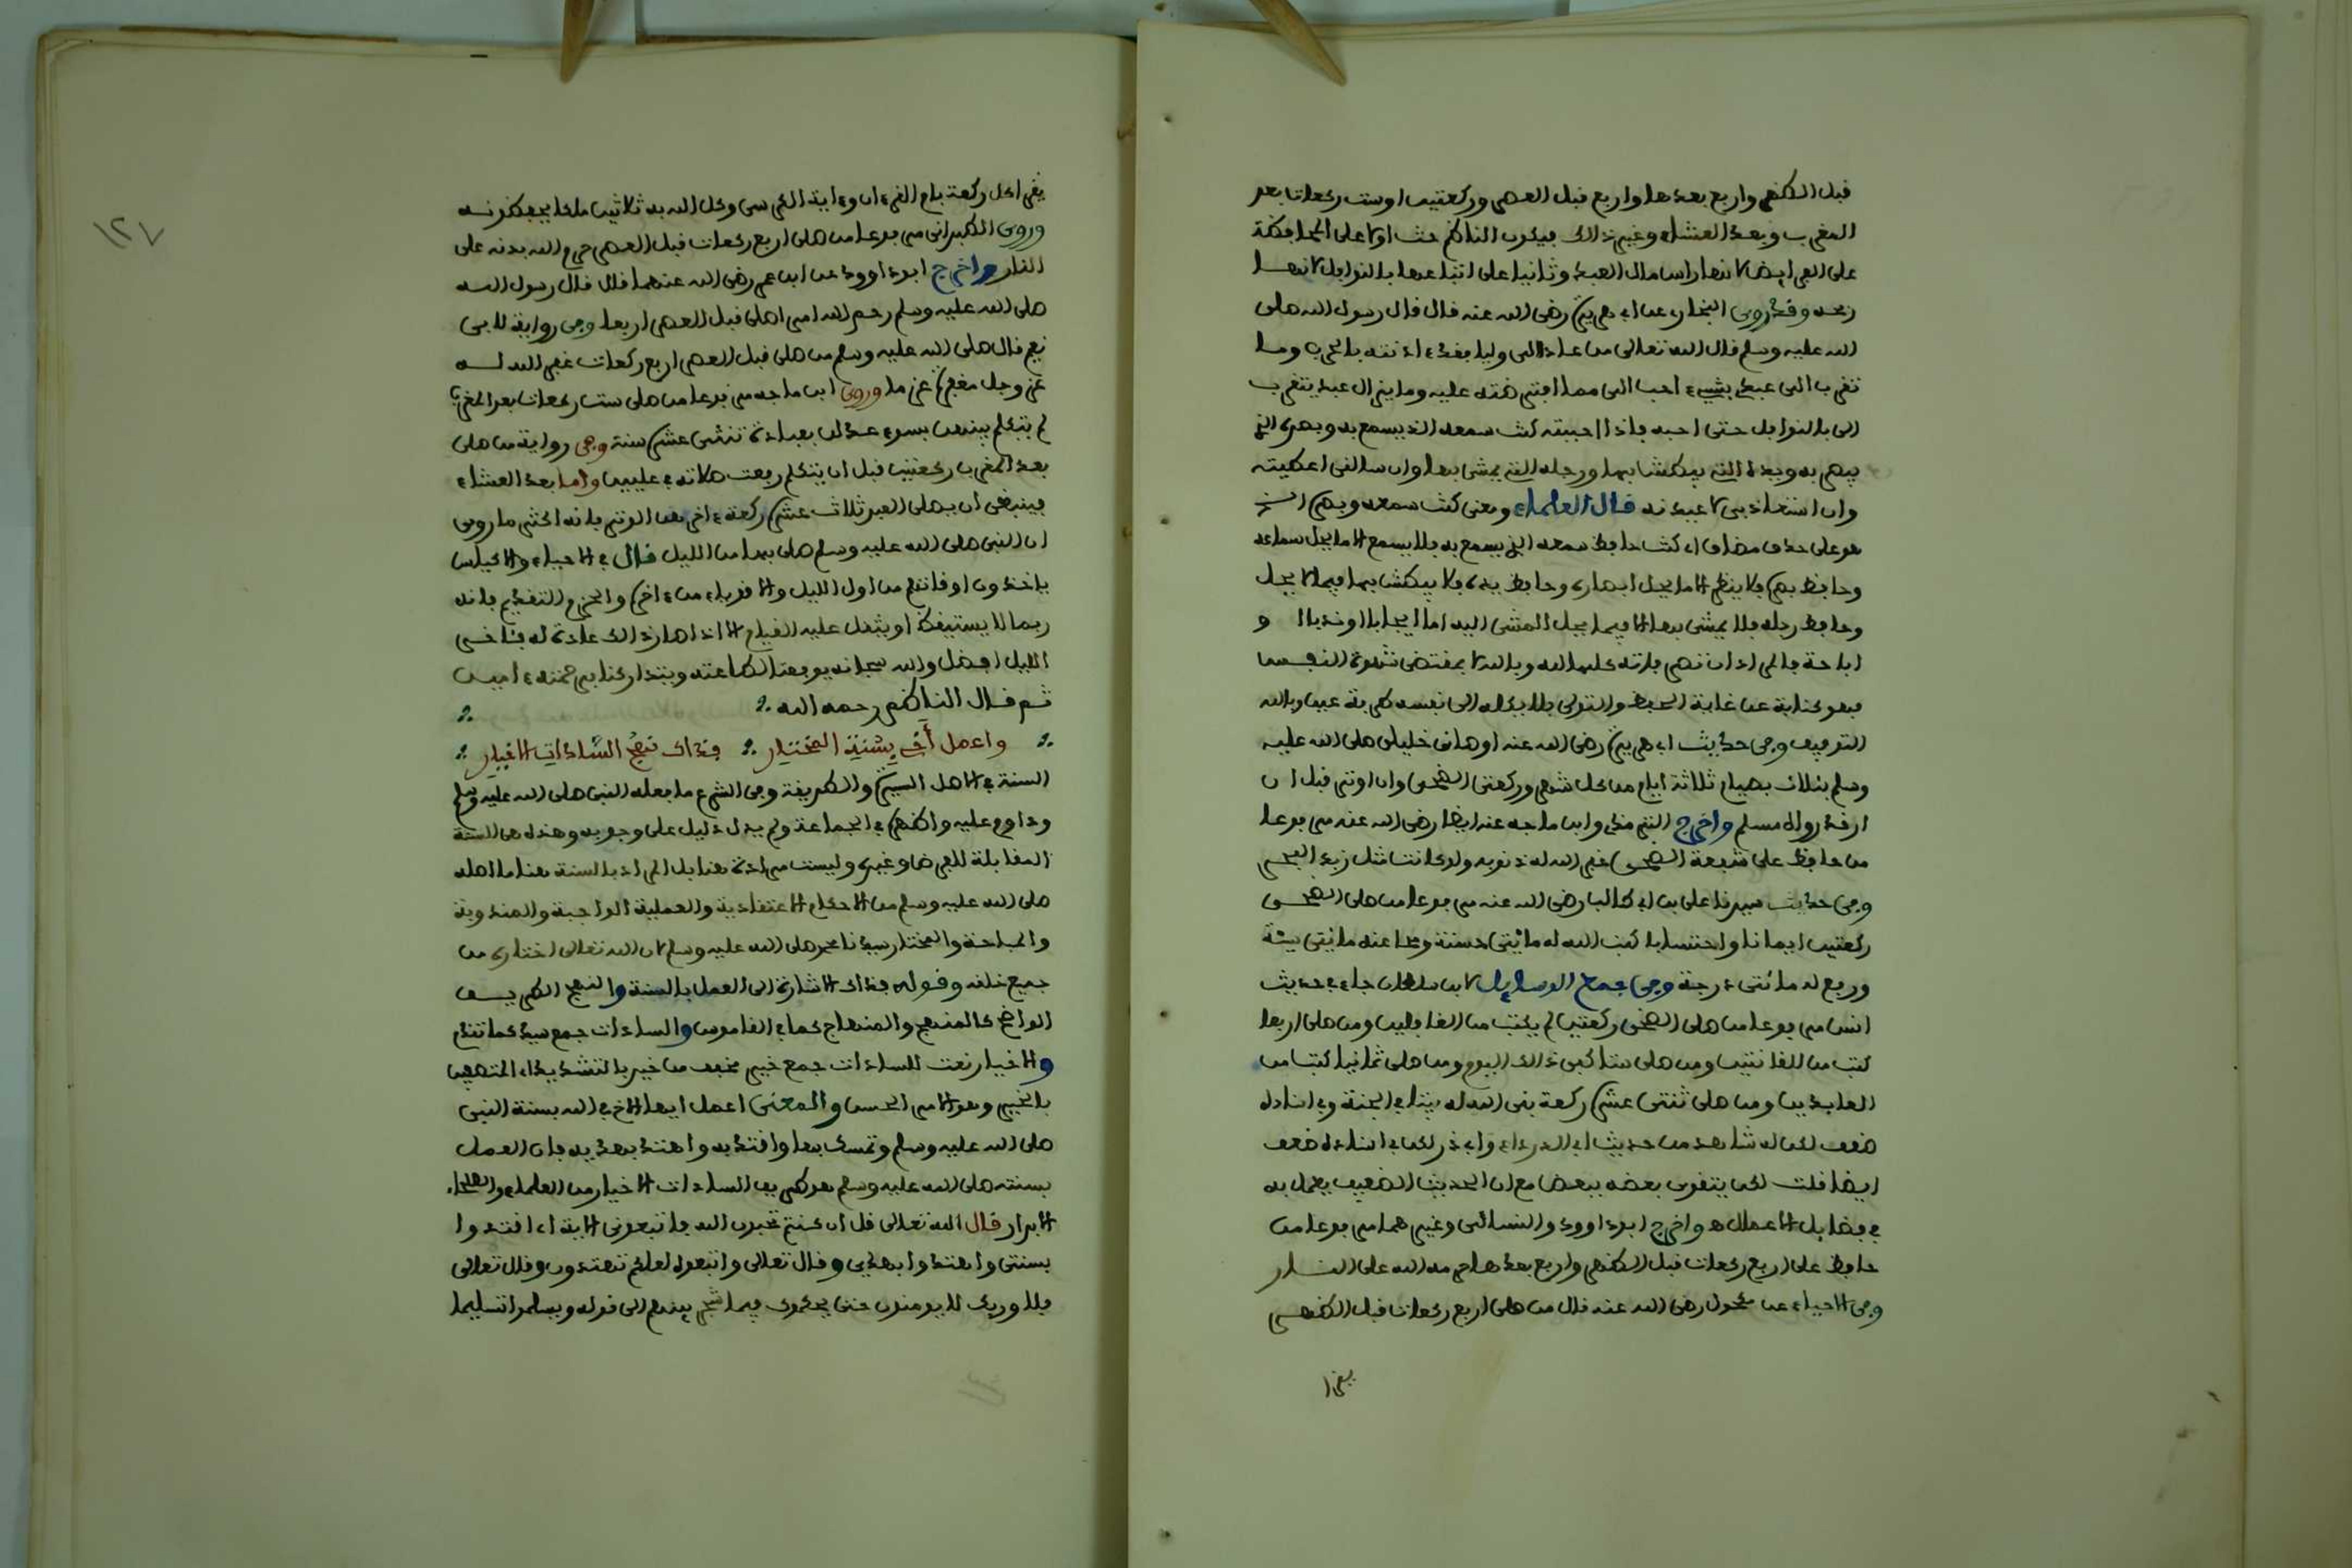 قبل الظهر واربع بعدها واربع قبل العصر وركعتين او ست ركعات بعد
المغرب وبعد العشاء وغير ذالك فيكون الناظم حث اولا على المحافظة
على الفرايض لانها راس مال العبد وثانيا على اتباعها بالنوافل لانها
ربحه وقد روى البخاري عن ابي هريرة رضى الله عنه قال قال رسول الله صلى
الله عليه وسلم قال الله تعالى من عادالى وليا فقد ءاذنته بالحرب وما
تقرب الى عبدي بشيء احب الى مما افترضته عليه وما يزال عبدي يتقرب
الى بالنوافل حتى احبه فاذا احببته كنت سمعه الذي يسمع به وبصره الذي
يبصر به ويده التي يبطش بها ورجله التي يمشى بها وان سالنى اعطيته
وان استعاذ بى لاعيذنه قال العلماء ومعنى كنت سمعه وبصره الخ
هو على حذف مضاف اي كنت حافظ سمعه الذي يسمع به فلا يسمع الا ما يحل سماعه
وحافظ بصره فلا ينظر الا ما يحل ابصاره وحافظ يده فلا يبطش بها فيما لا يحل
وحافظ رجله فلا يمشى بها الا فيما يحل المشى اليه اما ايجابا او ندبا او
اباحة فالمراد ان تصرفاته كلها لله وبالله لا بمقتضى شهوة النفس
فهو كناية عن غاية الحفظ والتولى فلا يكله الى نفسه طرفة عين وبالله
التوفيق وفى حديث ابي هريرة رضى الله عنه اوصانى خليلى صلى الله عليه
وسلم بثلاث بصيام ثلاثة ايام من كل شهر وركعتى الضحى وان اوتر قبل ان
ارقد رواه مسلم واخرج الترمذي وابن ماجه عنه ايضا رضى الله عنه مرفوعا
من حافظ على شفعة الضحى غفر الله له ذنوبه ولو كانت مثل زبد البحر
وفى حديث سيدنا على بن ابي طالب رضى الله عنه مرفوعا من صلى الضحى
ركعتين ايمانا واحتسابا كتب الله له مائتى حسنة ومحا عنه مائتى سيئة
ورفع له مائتى درجة وفى جمع الوسايل لابن سلطان جاء في حديث
انس مرفوعا من صلى الضحى ركعتين لم يكتب من الغافلين ومن صلى اربعا
كتب من القانتين ومن صلى ستا كفى ذالك اليوم ومن صلى ثمانيا كتب من
العابدين ومن صلى ثنتى عشرة ركعة بنى الله له بيتا في الجنة وفي اسناده
ضعف لكن له شاهد من حديث ابي الدرداء وابي ذر لكن في اسناده ضعف
ايضا قلت لكن يتقوى بعضه ببعض مع ان الحديث الضعيف يعمل به
في فضايل الاعمال ه واخرج ابو داوود والنسائى وغيرهما مرفوعا من
حافظ على اربع ركعات قبل الظهر واربع بعدها حرمه الله على النار
وفى الاحياء عن مكحول رضى الله عنه قال من صلى اربع ركعات قبل الظهر
يقرا
١٢٧
يقرا كل ركعة بام القرءان وءاية الكرسى وكل الله به ثلاثين ملكا يحفظونه
وروى الطبرانى مرفوعا من صلى اربع ركعات قبل العصر حرم الله بدنه على
النار واخرج ابو داوود عن ابن عمر رضى الله عنهما قال قال رسول الله
صلى الله عليه وسلم رحم الله امرءا صلى قبل العصر اربعا وفى رواية لابى
نعيم قال صلى الله عليه وسلم من صلى قبل العصر اربع ركعات غفر الله له
عز وجل مغفرة عزما وروى ابن ماجه مرفوعا من صلى ست ركعات بعد المغرب
لم يتكلم بينهن بسوء عدلن بعبادة ثنتى عشرة سنة وفى رواية من صلى
بعد المغرب ركعتين قبل ان يتكلم رفعت صلاته في عليين واما بعد العشاء
فينبغى ان يصلى العبد ثلاث عشرة ركعة ءاخرهن الوتر فانه اكثر ما روى
ان النبى صلى الله عليه وسلم صلى بها من الليل قال في الاحياء والاكياس
ياخذون اوقاتهم من اول الليل والاقوياء من ءاخره والحزم التقديم فانه
ربما لا يستيقظ او يثقل عليه القيام الا اذا صار ذالك عادة له فئاخر
الليل افضل والله سبحانه يوفقنا لطاعته ويتداركنا برحمته ءامين
ثم قال الناظم رحمه الله
واعمل أخي بسنة المختار فذاك نهج السادات الاخيار
السنة في الاصل السيرة والطريقة وفى الشرع ما فعله النبى صلى الله عليه وسلم
وداوم عليه واظهره في الجماعة ولم يدل دليل على وجوبه وهذه هى السنة
المقابلة للفرض وغيره وليست مرادة هنا بل المراد بالسنة هنا ما اصله
صلى الله عليه وسلم من الاحكام الاعتقادية والعملية الواجبة والمندوبة
والمباحة والمختار سيدنا محمد صلى الله عليه وسلم لان الله تعالى اختاره من
جميع خلقه وقوله فذاك الاشارة الى العمل بالسنة والنهج الطريق
الواضح كالمنهج والمنهاج كما في القاموس والسادات جمع سيد كما تقدم
والاخيار نعت للسادات جمع خير مخفف من خير بالتشديد اي المتصف
بالخير وهو الامر الحسن والمعنى اعمل ايها الاخ في الله بسنة النبى
صلى الله عليه وسلم وتمسك بها واقتد به واهتد بهديه فان العمل
بسنته صلى الله عليه وسلم هو طريق السادات الاخيار من العلماء والصلحاء
الابرار قال الله تعالى قل ان كنتم تحبون الله فاتبعونى الاية اي اقتدوا
بسنتى واهتدوا بهديي وقال تعالى واتبعوه لعلكم تهتدون وقال تعالى
فلا وربك لا يومنون حتى يحكموك فيما شجر بينهم الى قوله ويسلموا تسليما